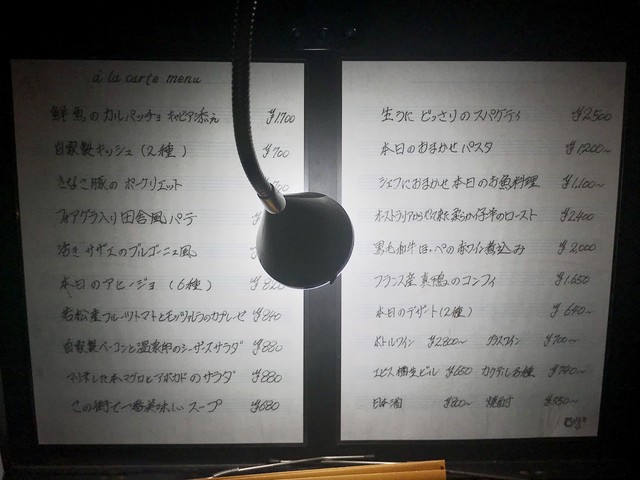 à la carte menu
鮮魚のカルパッチョ キャビア添え ¥1,700
自家製キッシュ(2種) ¥700
きなこ豚のポークリエット
フォアグラ入り田舎風パテ
活きサザエのブルゴーニュ風
本日のアヒージョ(6種) ¥820
若松産フルーツトマトとモッツァレラのカプレーゼ ¥840
自家製ベーコンと温泉卵のシーザーサラダ ¥880
マリネした本マグロとアボカドのサラダ ¥880
この街で一番美味しいスープ ¥680
生うにどっさりのスパゲティ ¥2,500
本日のおまかせパスタ ¥1,200〜
シェフにおまかせ本日のお魚料理 ¥1,100〜
オーストラリアからやって来た柔らか仔羊のロースト ¥2,400
黒毛和牛ほほ肉の赤ワイン煮込み ¥2,000
フランス産真鴨のコンフィ ¥1,650
本日のデザート(2種) ¥640〜
ボトルワイン ¥2800〜 グラスワイン ¥700〜
エビス樽生ビール ¥650 カクテル各種 ¥700〜
日本酒 ¥800〜 焼酎 ¥550〜